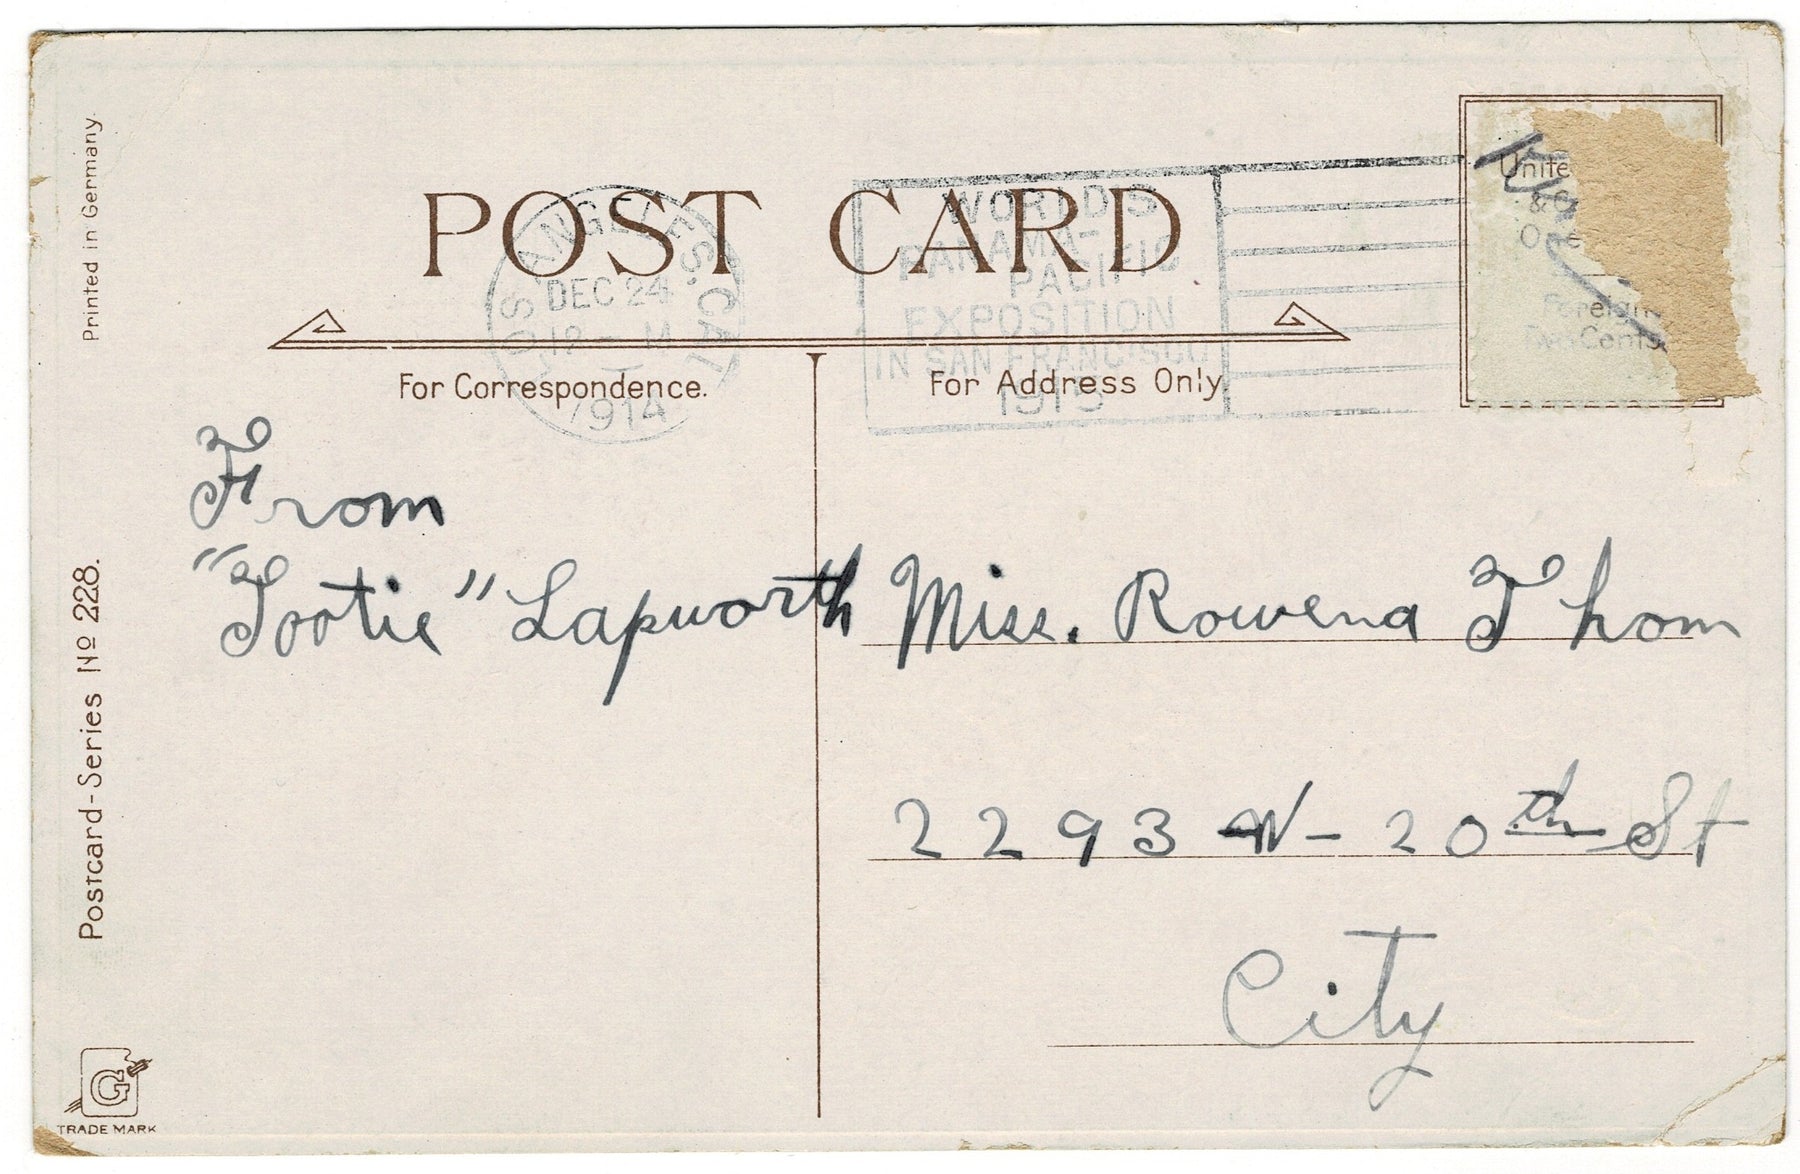 Printed in Germany.
POST CARD
LOS ANGELES. CAL
DEC 24
12 - M
1914
WORLD'S
PANAMA-
PACIFIC
EXPOSITION
IN SAN FRANCISCO
1915
Unite
&
One
Foreign
Two Cents
For Correspondence.
For Address Only.
From
"Tootie" Lapworth
Miss. Rowena Thom
2293 W- 20th St
City
Postcard-Series No 228.
G
TRADE MARK